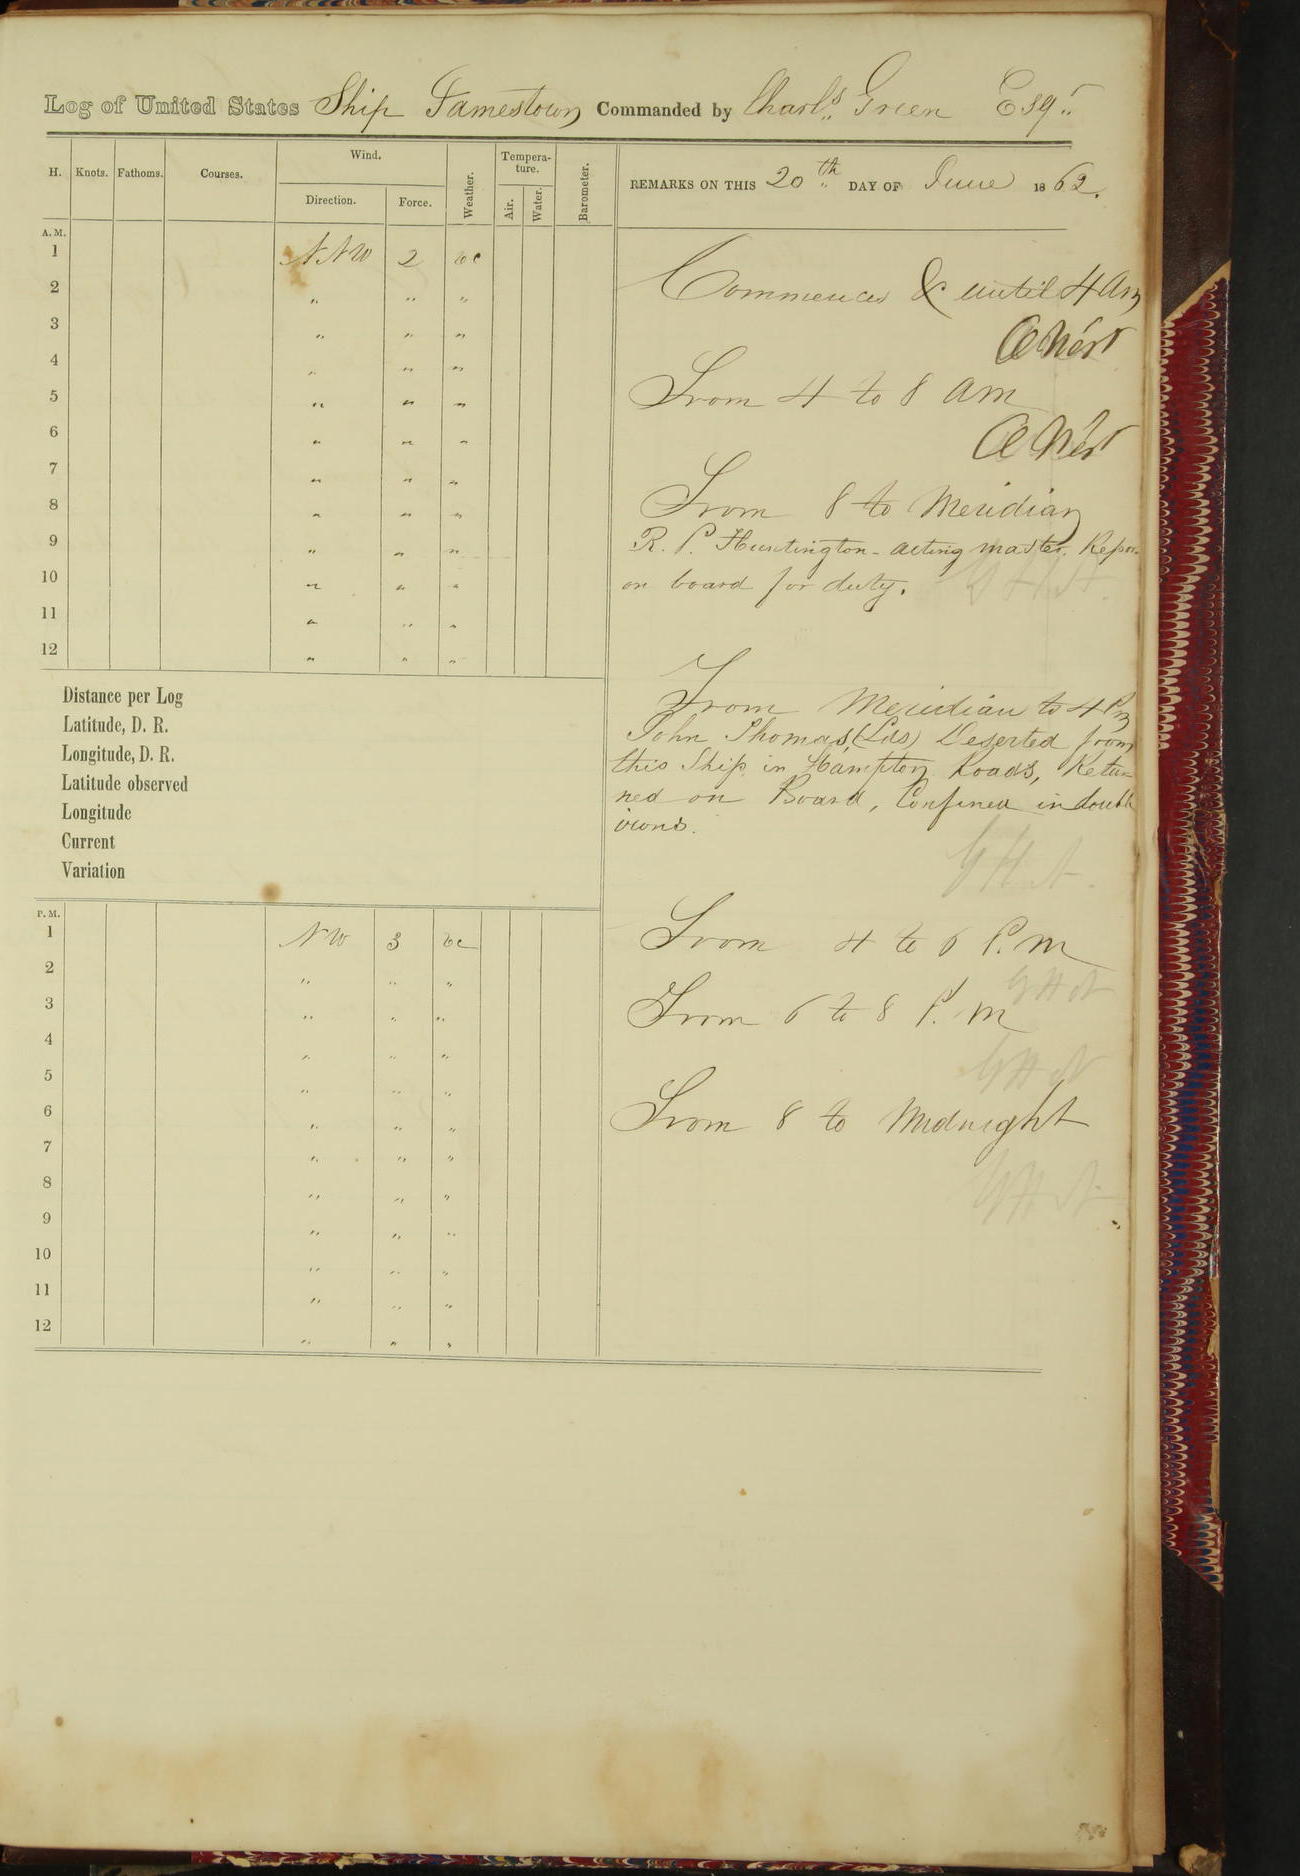 Log of United States Ship Jamestown Commanded by Charls Green Esqr
H. Knots. Fathoms. Courses. Wind. Direction. Force. Weather. Tempera-ture. Air. Water. Barometer.
REMARKS ON THIS 20th DAY OF June 1862.
A. M.
1 NNW 2 bc
2 " " "
3 " " "
4 " " "
5 " " "
6 " " "
7 " " "
8 " " "
9 " " "
10 " " "
11 " " "
12 " " "
Commences & until 4 Am
From 4 to 8 am
From 8 to Meridian
R. P. Huntington - acting master. Repor
on board for duty.
Distance per Log
Latitude, D. R.
Longitude, D. R.
Latitude observed
Longitude
Current
Variation
From Meridian to 4 Pm
John Thomas, (Lds) Deserted from
this Ship in Hampton Roads, Retur-
ned on Board, Confined in double
irons.
P. M.
1 NW 3 bc
2 " " "
3 " " "
4 " " "
5 " " "
6 " " "
7 " " "
8 " " "
9 " " "
10 " " "
11 " " "
12 " " "
From 4 to 6 P.M
From 6 to 8 P.M
From 8 to Midnight